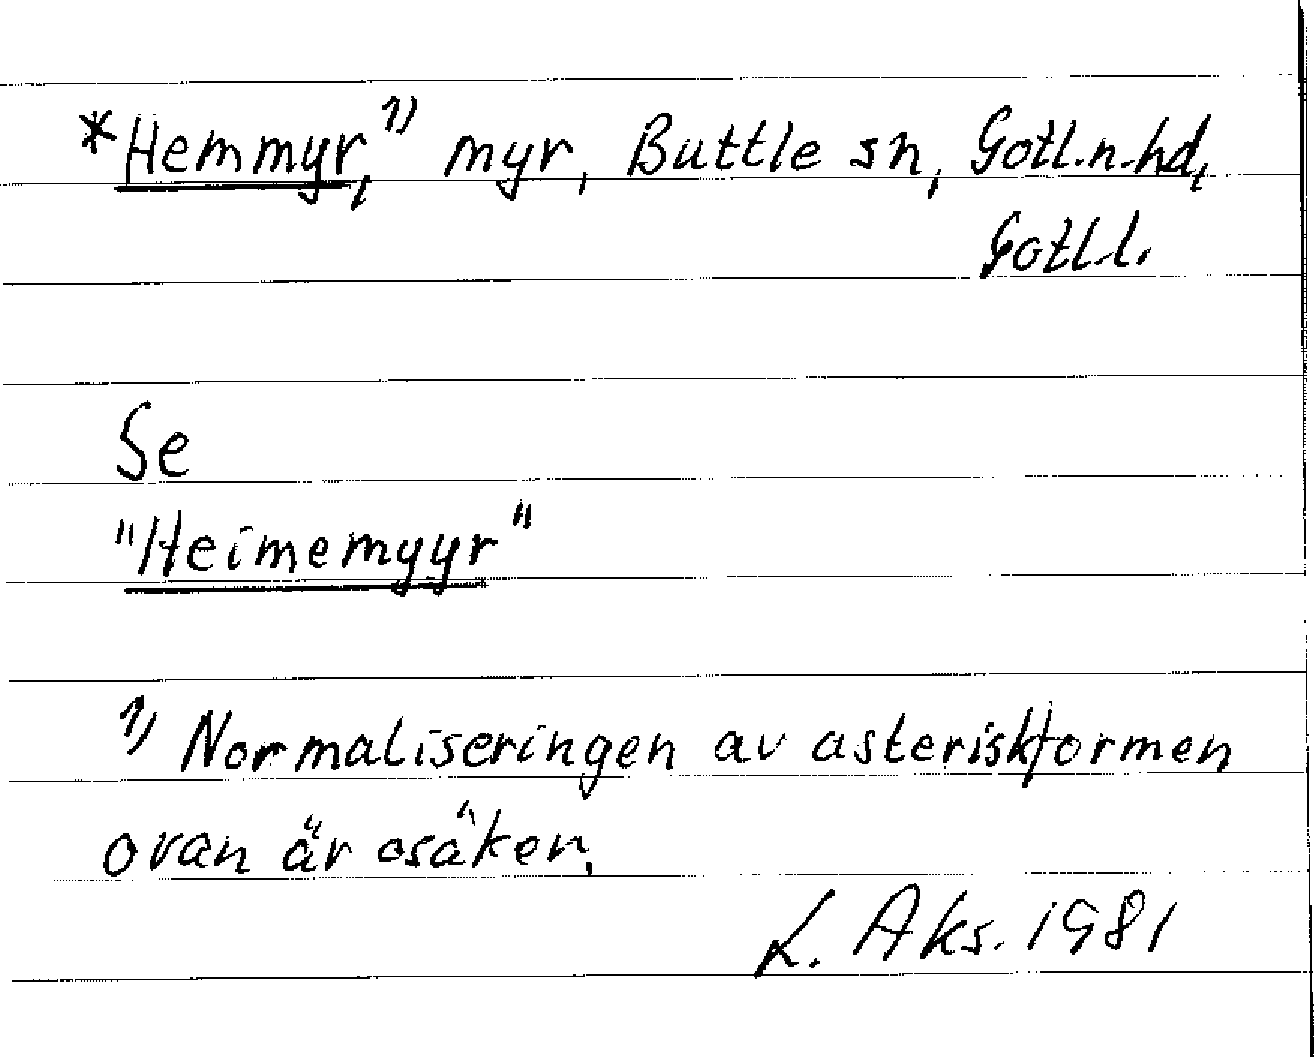 *Hemmyr,¹⁾ myr, Buttle sn, Gotl.n.hd,
Gotl.l.
Se
"Heimemyyr"
¹⁾ Normaliseringen av asteriskformen
ovan är osäker.
L. Aks. 1981